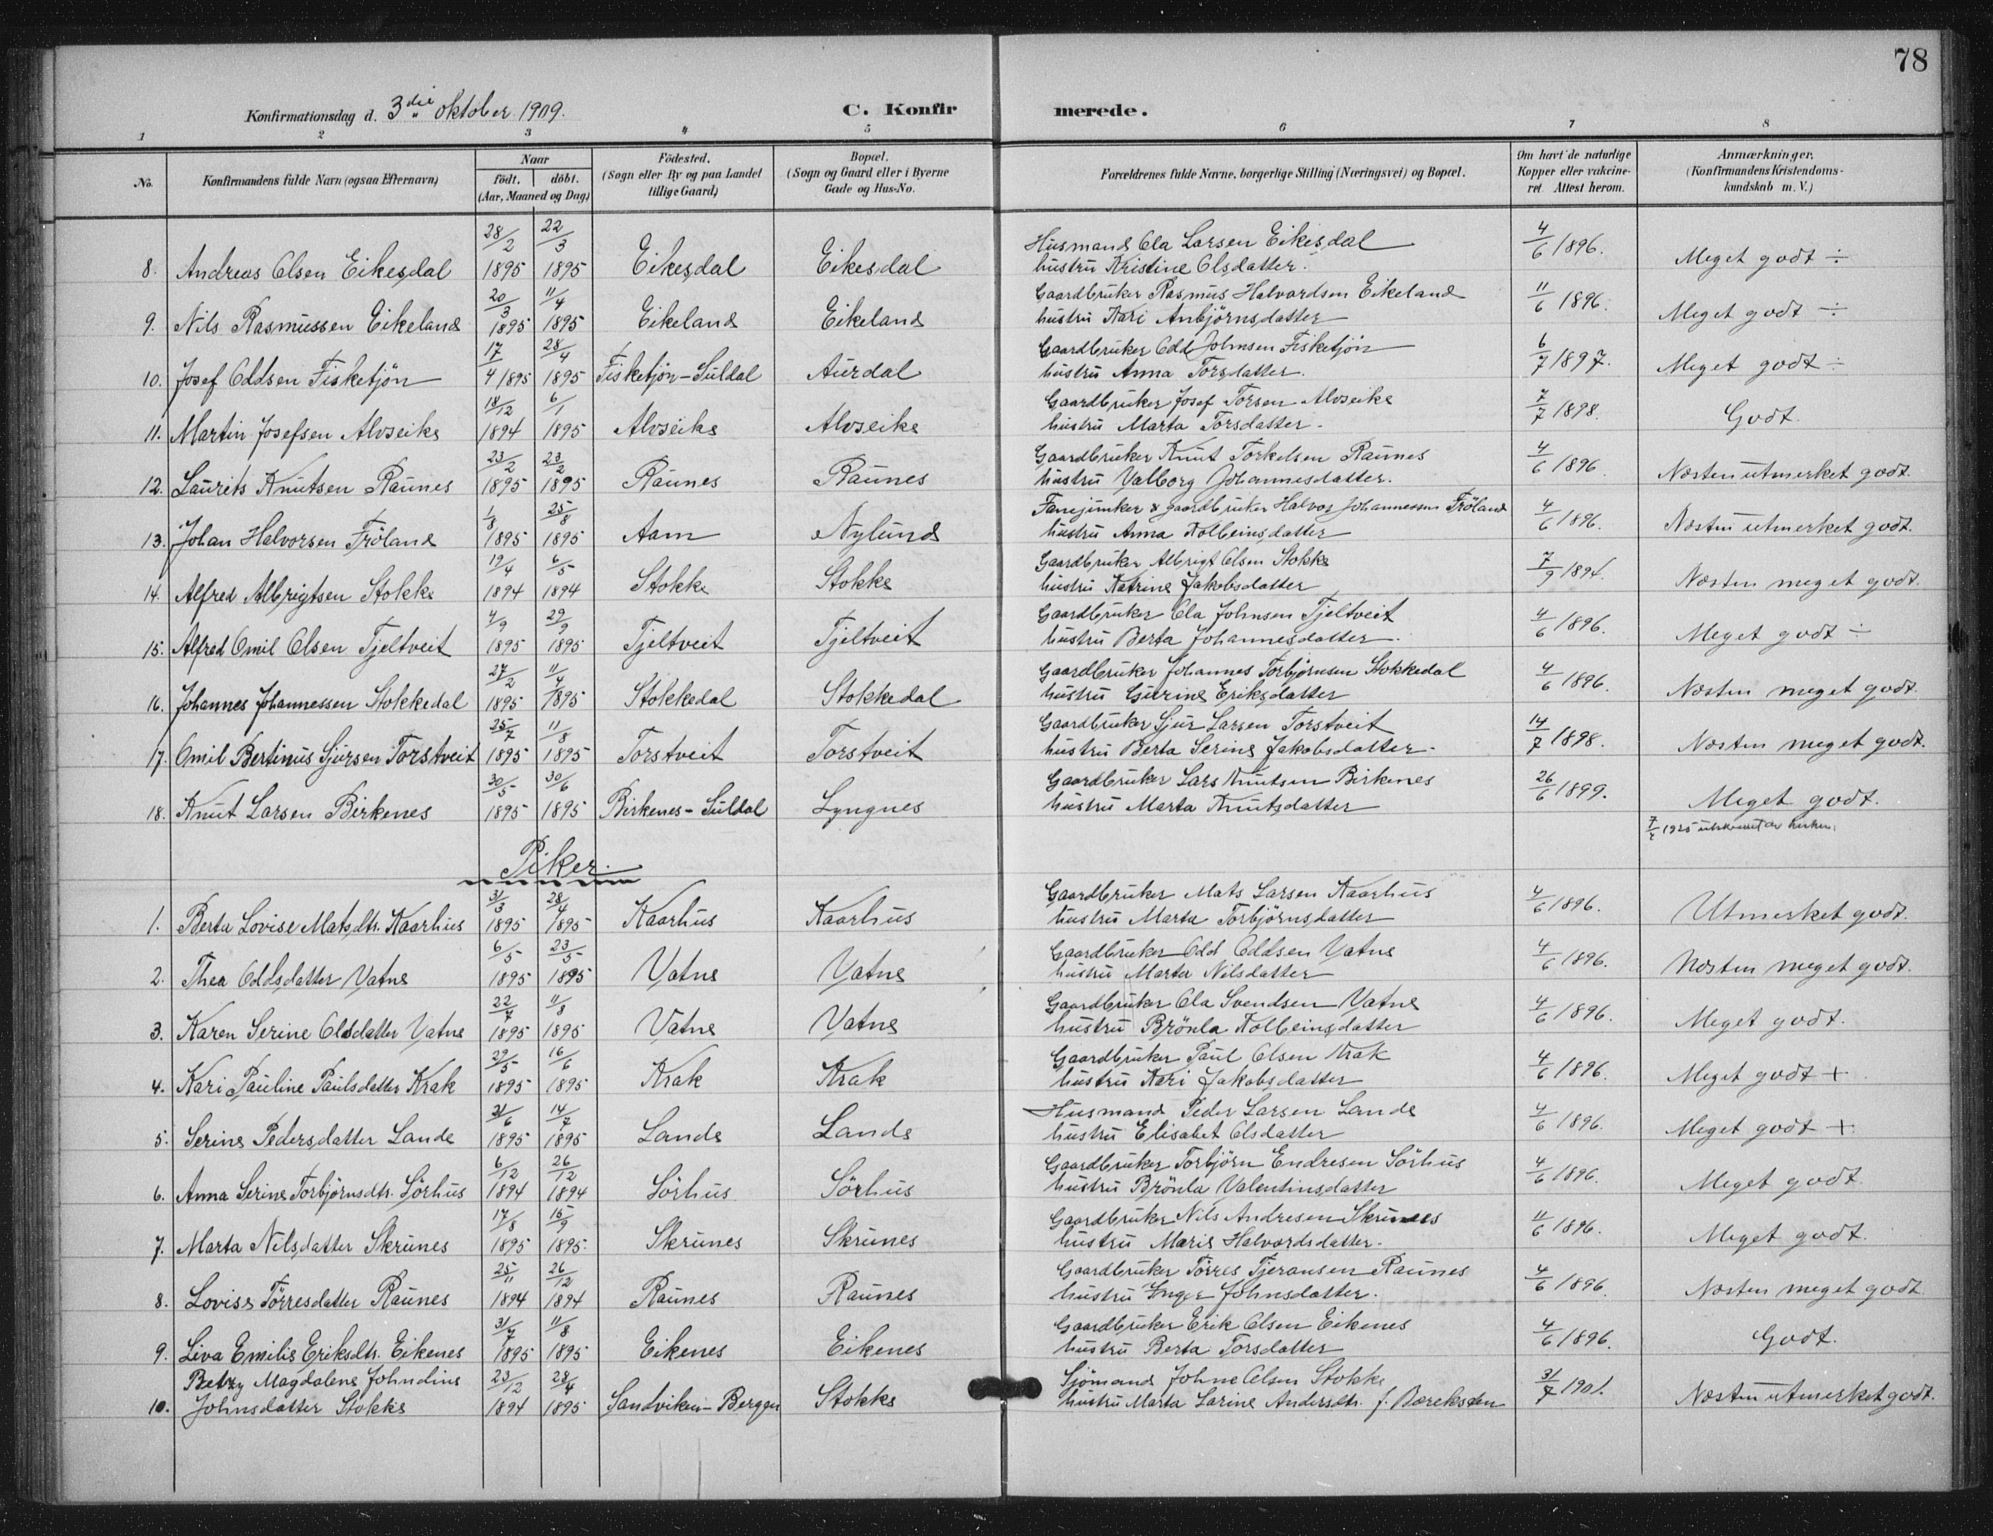 78
Konfirmationsdag d. 3die oktober 1909.
C. Konfirmerede.
1 2 3 4 5 6 7 8
No. Konfirmandens fulde Navn (ogsaa Efternavn) Naar födt. döbt. (Aar, Maaned og Dag) Födested. (Sogn eller By og paa Landet tillige Gaard) Bopæl. (Sogn og Gaard eller i Byerne Gade og Hus-No. Forældrenes fulde Navne, borgerlige Stilling (Næringsvei) og Bopæl. Om havt de naturlige Kopper eller vakcineret Attest herom. Anmærkninger. (Konfirmandens Kristendomskundskab m. V.)
28/2 22/3 Husmand Ola Larsen Eikesdal 4/6 1896.
8. Andreas Olsen Eikesdal 1895 1895 Eikesdal Eikesdal hustru Kristine Olsdatter. Meget godt ÷
20/3 11/4 Gaardbruker Rasmus Halvardsen Eikeland 11/6 1896.
9. Nils Rasmussen Eikeland 1895 1895 Eikeland Eikeland hustru Kari Anbjörnsdatter Meget godt ÷
17/4 28/4 Gaardbruker Odd Johnsen Fisketjön 6/7 1897.
10. Josef Oddsen Fisketjön 1895 1895 Fisketjön-Suldal Aurdal hustru Anna Torsdatter. Meget godt ÷
18/12 6/1 Gaardbruker Josef Torsen Alvseike 7/7 1898.
11. Martin Josefsen Alvseike 1894 1895 Alvseike Alvseike hustru Marta Torsdatter. Godt.
23/2 23/2 Gaardbruker Knut Torkelsen Raunes 4/6 1896
12. Laurits Knutsen Raunes 1895 1895 Raunes Raunes hustru Valborg Johannesdatter. Næsten utmerket godt.
1/8 25/8 Fanejunker & gaardbruker Halvor Johannessen Fröland 4/6 1896.
13. Johan Halvorsen Fröland 1895 1895 Aam Nylund hustru Anna Kolbeinsdatter Næsten utmerket godt.
19/4 6/5 Gaardbruker Albrigt Olsen Stokke 7/9 1894.
14. Alfred Albrigtsen Stokke 1894 1894 Stokke Stokke hustru Katrine Jakobsdatter Næsten meget godt.
7/9 29/9 Gaardbruker Ola Johnsen Tjeltveit 4/6 1896.
15. Alfred Omil Olsen Tjeltveit 1895 1895 Tjeltveit Tjeltveit hustru Berta Johannesdatter. Meget godt ÷
27/2 11/4 Gaardbruker Johannes Torbjørnsen Stokkedal 4/6 1896.
16. Johannes Johannessen Stokkedal 1895 1895 Stokkedal Stokkedal hustru Gurine Eriksdatter Næsten meget godt.
25/7 11/8 Gaardbruker Sjur Larsen Torstveit 14/7 1898.
17. Omil Bertinus Sjursen Torstveit 1895 1895 Torstveit Torstveit hustru Berta Serine Jakobsdatter. Næsten meget godt.
30/5 30/6 Gaardbruker Lars Knutsen Birkenes 26/6 1899.
18. Knut Larsen Birkenes 1895 1895 Birkenes-Suldal Lyngnes hustru Marta Knutsdatter Meget godt.
1925
Piker.
31/3 28/4 Gaardbruker Mats Larsen Kaarhus 4/6 1896.
1. Berta Lovise Matsdtr. Kaarhus 1895 1895 Kaarhus Kaarhus hustru Marta Torbjörnsdatter Utmerket godt.
6/5 23/5 Gaardbruker Odd Oddsen Vatne 4/6 1896.
2. Thea Oddsdatter Vatne 1895 1895 Vatne Vatne hustru Marta Nilsdatter Næsten meget godt.
22/7 11/8 Gaardbruker Ola Svendsen Vatne 4/6 1896.
3. Karen Serine Olsdatter Vatne 1895 1895 Vatne Vatne hustru Brönla Kolbeinsdatter Meget godt.
29/5 16/6 Gaardbruker Paul Olsen Krak 4/6 1896.
4. Kari Pauline Paulsdatter Krak 1895 1895 Krak Krak hustru Kari Jakobsdatter Meget godt +
21/6 14/7 Husmand Peder Larsen Lande 4/6 1896.
5. Serine Pedersdatter Lande 1895 1895 Lande Lande hustru Elisabet Olsdatter Meget godt +
6/12 26/12 Gaardbruker Torbjörn Endresen Sörhus 4/6 1896.
6. Anna Serine Torbjörnsdtr. Sörhus 1894 1894 Sörhus Sörhus hustru Brönla Valentinsdatter Meget godt
17/8 15/9 Gaardbruker Nils Andresen Skrunes 11/6 1896.
7. Marta Nilsdatter Skrunes 1895 1895. Skrunes Skrunes hustru Marie Halvordsdatter. Meget godt.
25/11 26/12 Gaardbruker Törres Tjeransen Raunes 4/6 1896
8. Lovise Törresdatter Raunes 1894 1894 Raunes Raunes hustru Inger Johnsdatter. Næsten meget godt
31/7 11/8 Gaardbruker Erik Olsen Eikenes 4/6 1896.
9. Liva Emilie Eriksdtr. Eikenes 1895 1895 Eikenes Eikenes hustru Berta Torsdatter Godt.
Betzy Magdalene Johndine 23/12 28/4 Sjömand Johne Olsen Stokke 31/7 1901.
10. Johnsdatter Stokke 1894 1895 Sandviken-Bergen Stokke hustru Marta Larine Andersdtr. f. Næsten utmerket godt.